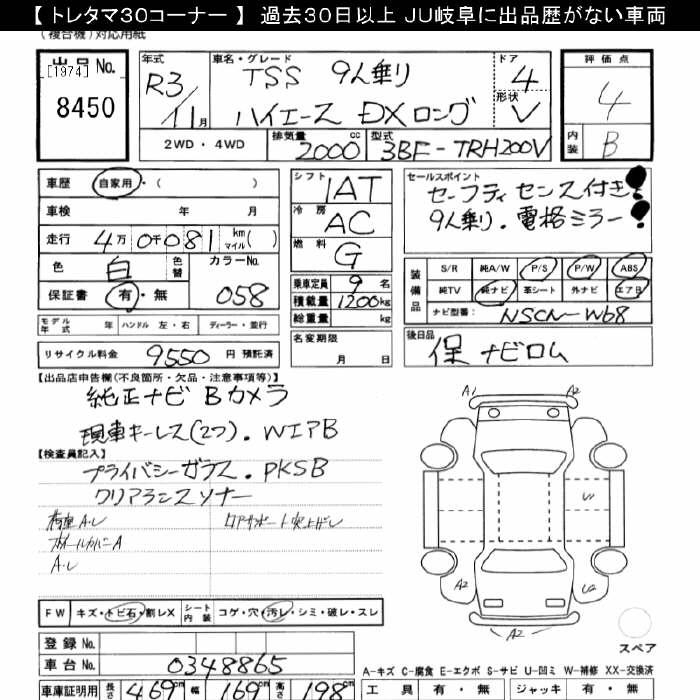 【トレタマ30コーナー】 過去30日以上 JU岐阜に出品歴がない車両
(複合機)対応用紙
出品No. [1974] 8450
年式 R3/11月
車名・グレード TSS 9人乗り
ハイエース DXロング
ドア 4
形状 V
評価点 4
内装 B
2WD・4WD
排気量 2000cc
型式 3BF-TRH200V
車歴 自家用・( )
車検 年 月
走行 4万0千081 km マイル( )
色 白 色替 カラーNo. 058
保証書 有・無
モデル年式 年 ハンドル 左・右 ディーラー・並行
リサイクル料金 9550円 預託済
シフト IAT
冷房 AC
燃料 G
乗車定員 9名
積載量 1200kg
総重量 kg
名変期限 月 日
セールスポイント
セーフティセンス付き!
9人乗り.電格ミラー!
装備品
S/R 純A/W P/S P/W ABS
純TV 純ナビ 革シート 外ナビ エアB
ナビ型番: NSCN-W68
後日品 保 ナビロム
【出品店申告欄(不良箇所・欠品・注意事項等)】
純正ナビ Bカメラ
現車キーレス(2つ).WエアB
【検査員記入】
プライバシーガラス.PKSB
クリアランスソナー
荷室A.レ
ホイールカバーA
A.レ
A1 A2
U
A2 U2
A2
スペア
FW キズ・トビ石・割レX シート内装 コゲ・穴・汚レ・シミ・破レ・スレ
登録No.
車台No. 0348865
車庫証明用 長さ 469cm 幅 169cm 高さ 198cm
A-キズ C-腐食 E-エクボ S-サビ U-凹ミ W-補修 XX-交換済
工具 有・無 ジャッキ 有・無